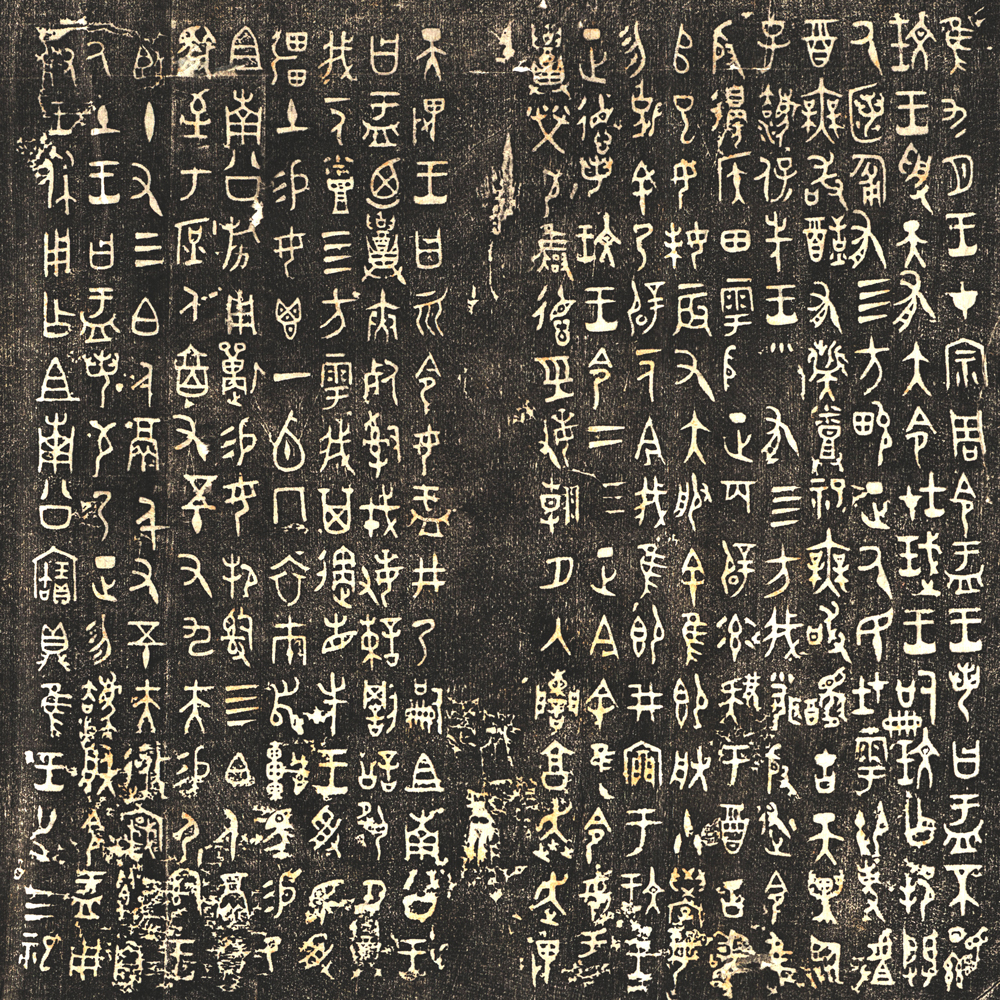 隹九月王才宗周令盂王若曰盂不顯
玟王受天有大令在珷王嗣玟乍邦闢
厥匿匍有四方畯正厥民在雩御事𠭯
酉無敢酖有祡蒸祀無敢醻古天異臨
子灋保先王□有四方我聞殷述令隹
殷邊侯田雩殷正百辟率肄于酉古喪
𠂤已女妹辰又大服余隹即朕小學女
勿剋余乃辟一人今我隹即井㐭于玟王
正德若玟王令二三正今余隹令女盂
召榮敬雍德巠敏朝夕入讕享奔走畏
天畏王曰𠀠令女盂井乃嗣且南公王
曰盂迺召夾死𤔲戎敏諫罰訟夙夕召
我一人烝四方雩我其遹省先王受民受
疆土易女鬯一卣冂衣巿舄車馬易乃
且南公旂用遛易女邦𤔲四白人鬲自
馭至于庶人六百又五十又九夫易尸𤔲王
臣十又三白人鬲千又五十夫𨒅𡩜遷自
厥土王曰盂若敬乃正勿灋朕令盂用
對王休用乍且南公寶鼎隹王廿又三祀